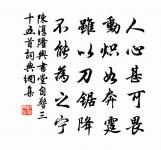 人心甚可畏
動熾如奔霆
雖以刀鋸降
不能為之寧
陳淳隆興書堂自警三
十五首詞典網集